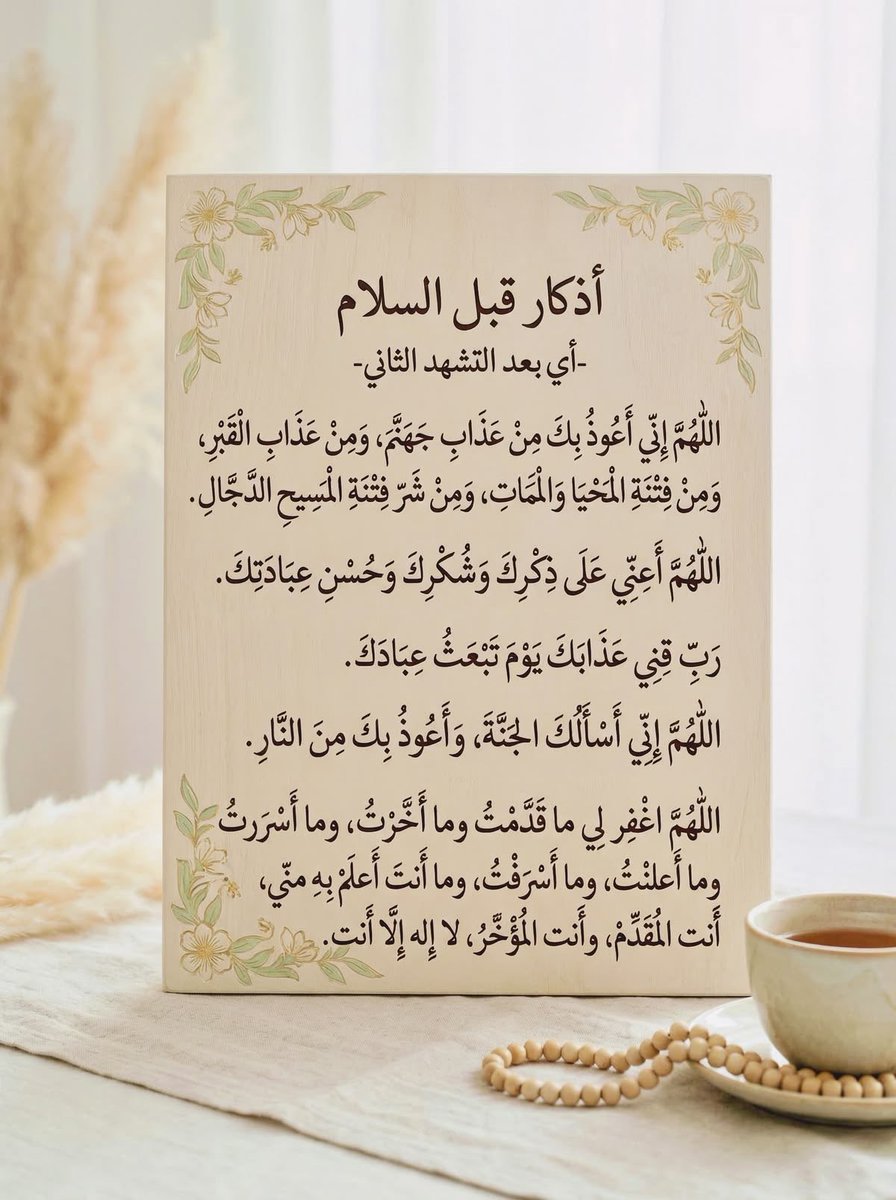 أذكار قبل السلام
-أي بعد التشهد الثاني-
اللَّهُمَّ إِنِّي أَعُوذُ بِكَ مِنْ عَذَابِ جَهَنَّمَ، وَمِنْ عَذَابِ الْقَبْرِ،
وَمِنْ فِتْنَةِ الْمَحْيَا وَالْمَمَاتِ، وَمِنْ شَرِّ فِتْنَةِ الْمَسِيحِ الدَّجَّالِ.
اللَّهُمَّ أَعِنِّي عَلَى ذِكْرِكَ وَشُكْرِكَ وَحُسْنِ عِبَادَتِكَ.
رَبِّ قِنِي عَذَابَكَ يَوْمَ تَبْعَثُ عِبَادَكَ.
اللَّهُمَّ إِنِّي أَسْأَلُكَ الجَنَّةَ، وَأَعُوذُ بِكَ مِنَ النَّارِ.
اللَّهُمَّ اغْفِر لِي ما قَدَّمْتُ وما أَخَّرْتُ، وما أَسْرَرتُ
وما أَعلنْتُ، وما أَسْرَفْتُ، وما أَنتَ أَعلَمْ بِهِ منّي،
أَنت المُقَدِّمْ، وأَنت المُؤْخَّرُ، لا إِله إِلَّا أَنت.